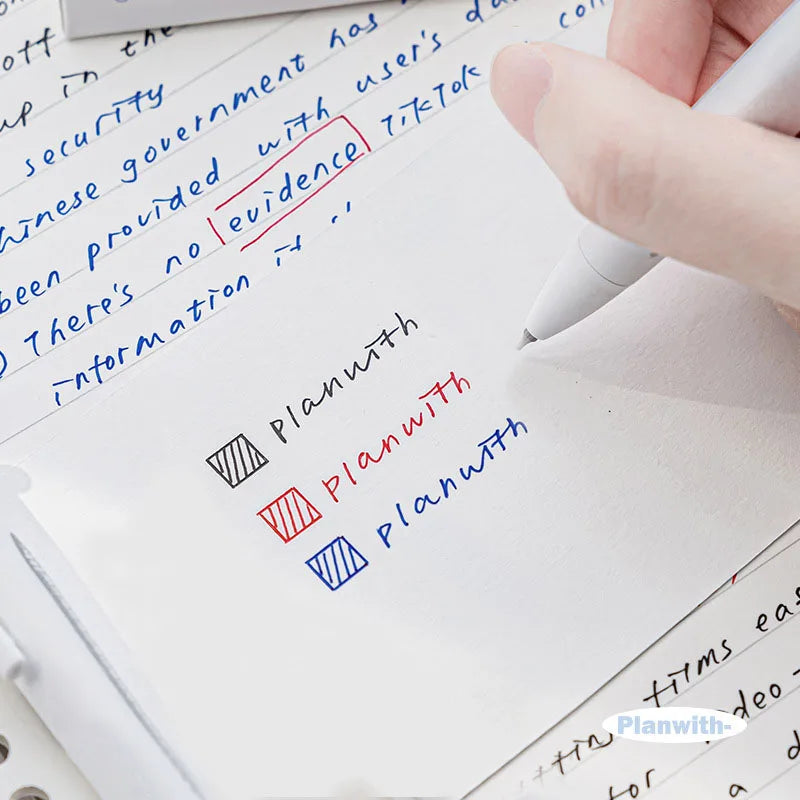 off
up in the
security
government has
been provided with user's
There's no evidence TikTok
information it
planwith
planwith
planwith
films
Planwith-
for
a